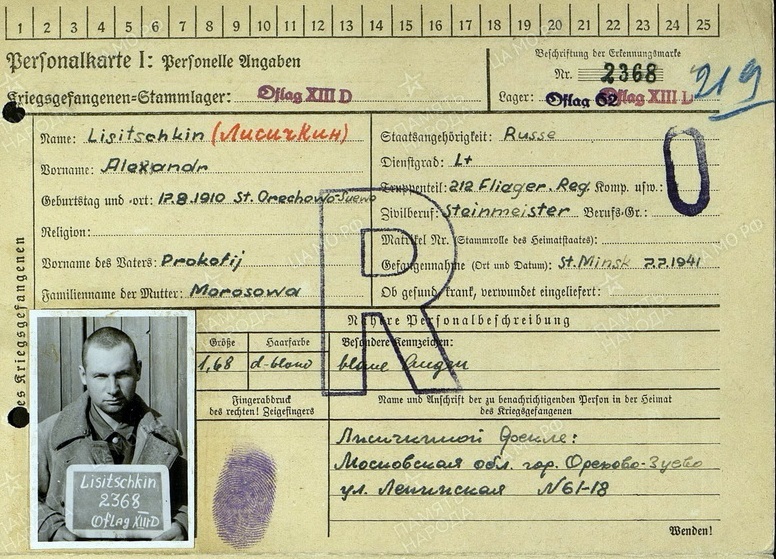 1 2 3 4 5 6 7 8 9 10 11 12 13 14 15 16 17 18 19 20 21 22 23 24 25
Personalkarte I: Personelle Angaben
Kriegsgefangenen-Stammlager: Oflag XIII D
Beschriftung der Erkennungsmarke
Nr. 2368
Lager: Oflag 62 Oflag XIII
219
Name: Lisitschkin (Лисичкин)
Vorname: Alexandr
Geburtstag und -ort: 17.8.1910 St. Orechowo-Suewo
Religion:
Vorname des Vaters: Prokofij
Familienname der Mutter: Morosowa
Staatsangehörigkeit: Russe
Dienstgrad: Lt
Truppenteil: 212 Flieger. Reg. Komp. usw.:
Zivilberuf: Steinmeister Berufs-Gr.:
Matrikel Nr. (Stammrolle des Heimatstaates):
Gefangennahme (Ort und Datum): St. Minsk 7.7.1941
Ob gesund, krank, verwundet eingeliefert:
0
R
des Kriegsgefangenen
Nähere Personalbeschreibung
Größe
1,68
Haarfarbe
d-blond
Besondere Kennzeichen:
blaue Augen
Fingerabdruck
des rechten! Zeigefingers
Name und Anschrift der zu benachrichtigenden Person in der Heimat
des Kriegsgefangenen
Лисичкиной Фекле:
Московская обл. гор. Орехово-Зуево
ул. Ленинская N61-18
Wenden!
Lisitschkin
2368
Oflag XIII D
ПАМЯТЬ НАРОДА
ЦАМО РФ